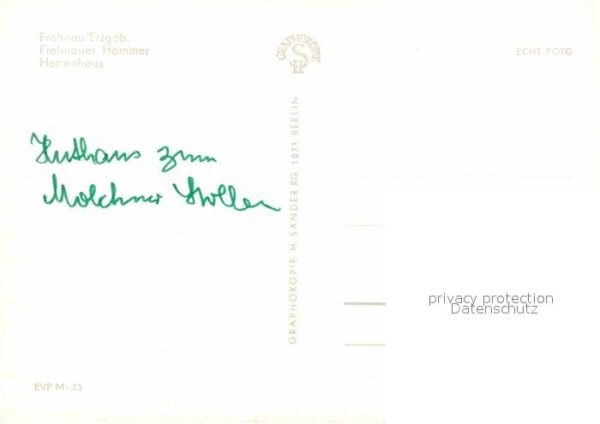 Frohnau/Erzgeb.
Frohnauer Hammer
Herrenhaus
GRAPHOKOPIE
HS
ECHT FOTO
Huthaus zum
Molchner Stollen
GRAPHOKOPIE H. SANDER KG, 1071 BERLIN
privacy protection
Datenschutz
EVP M -,25